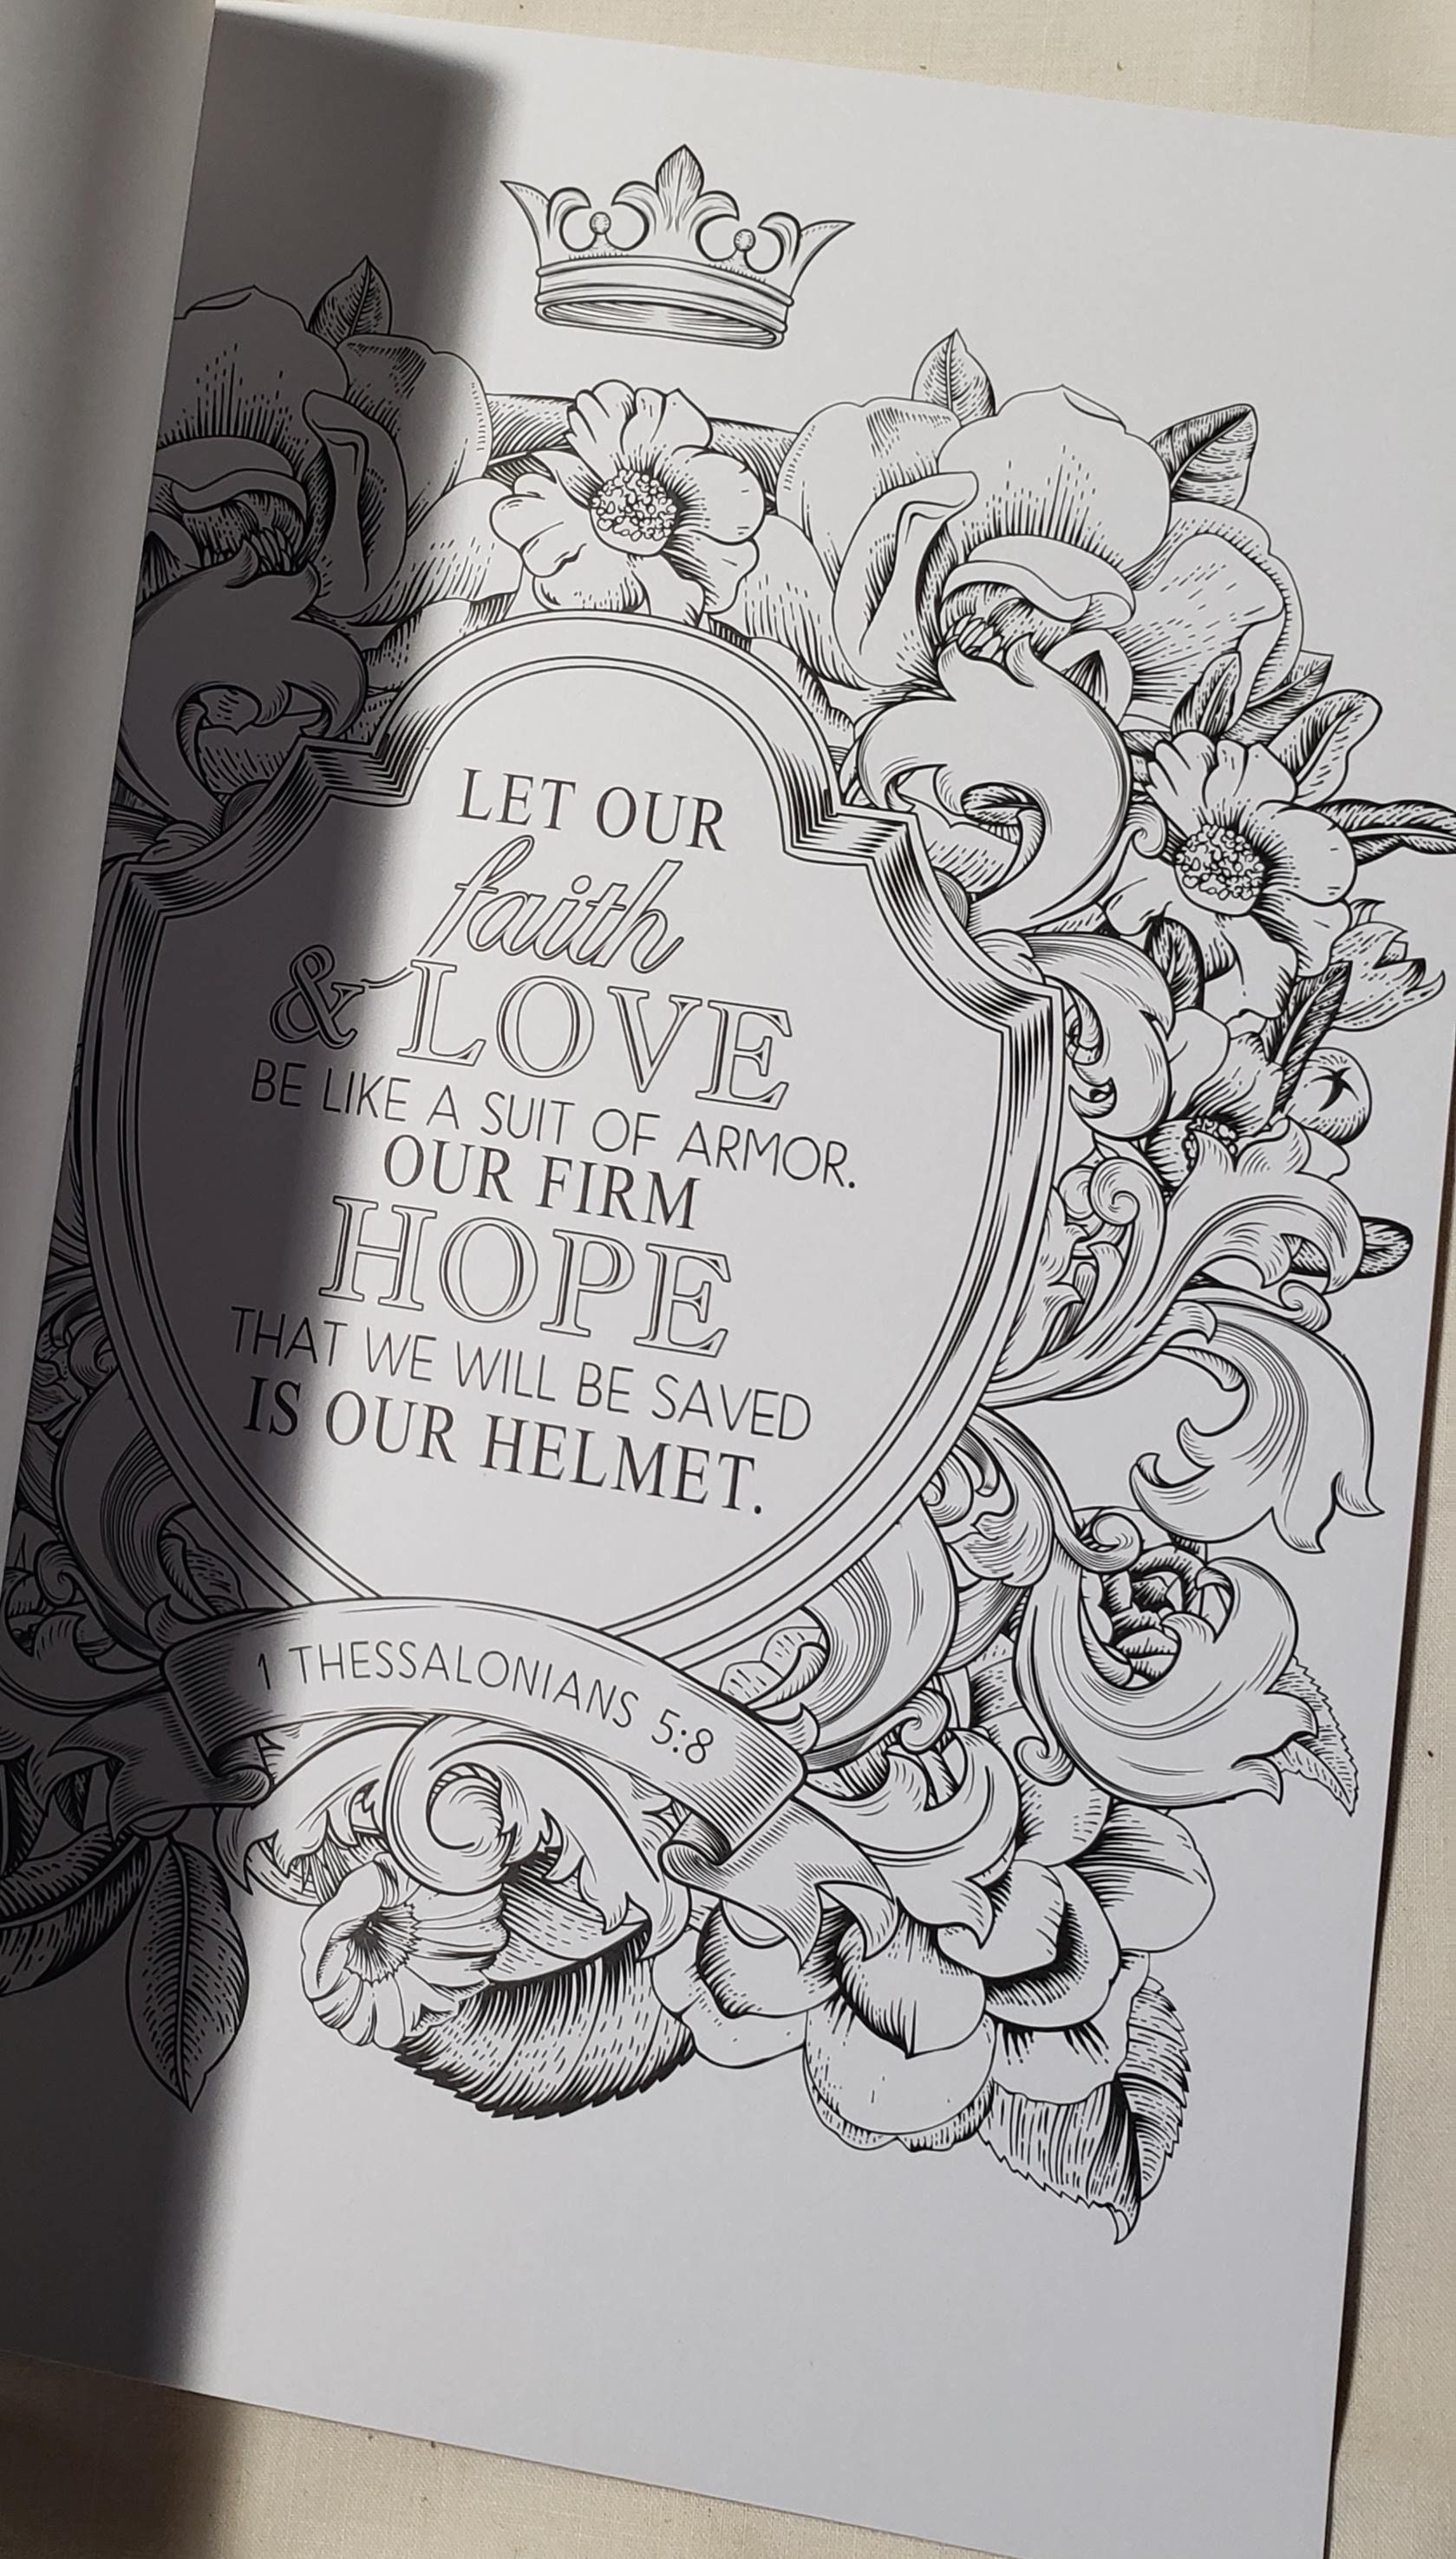 LET OUR
faith
& LOVE
BE LIKE A SUIT OF ARMOR.
OUR FIRM
HOPE
THAT WE WILL BE SAVED
IS OUR HELMET.
1 THESSALONIANS 5:8